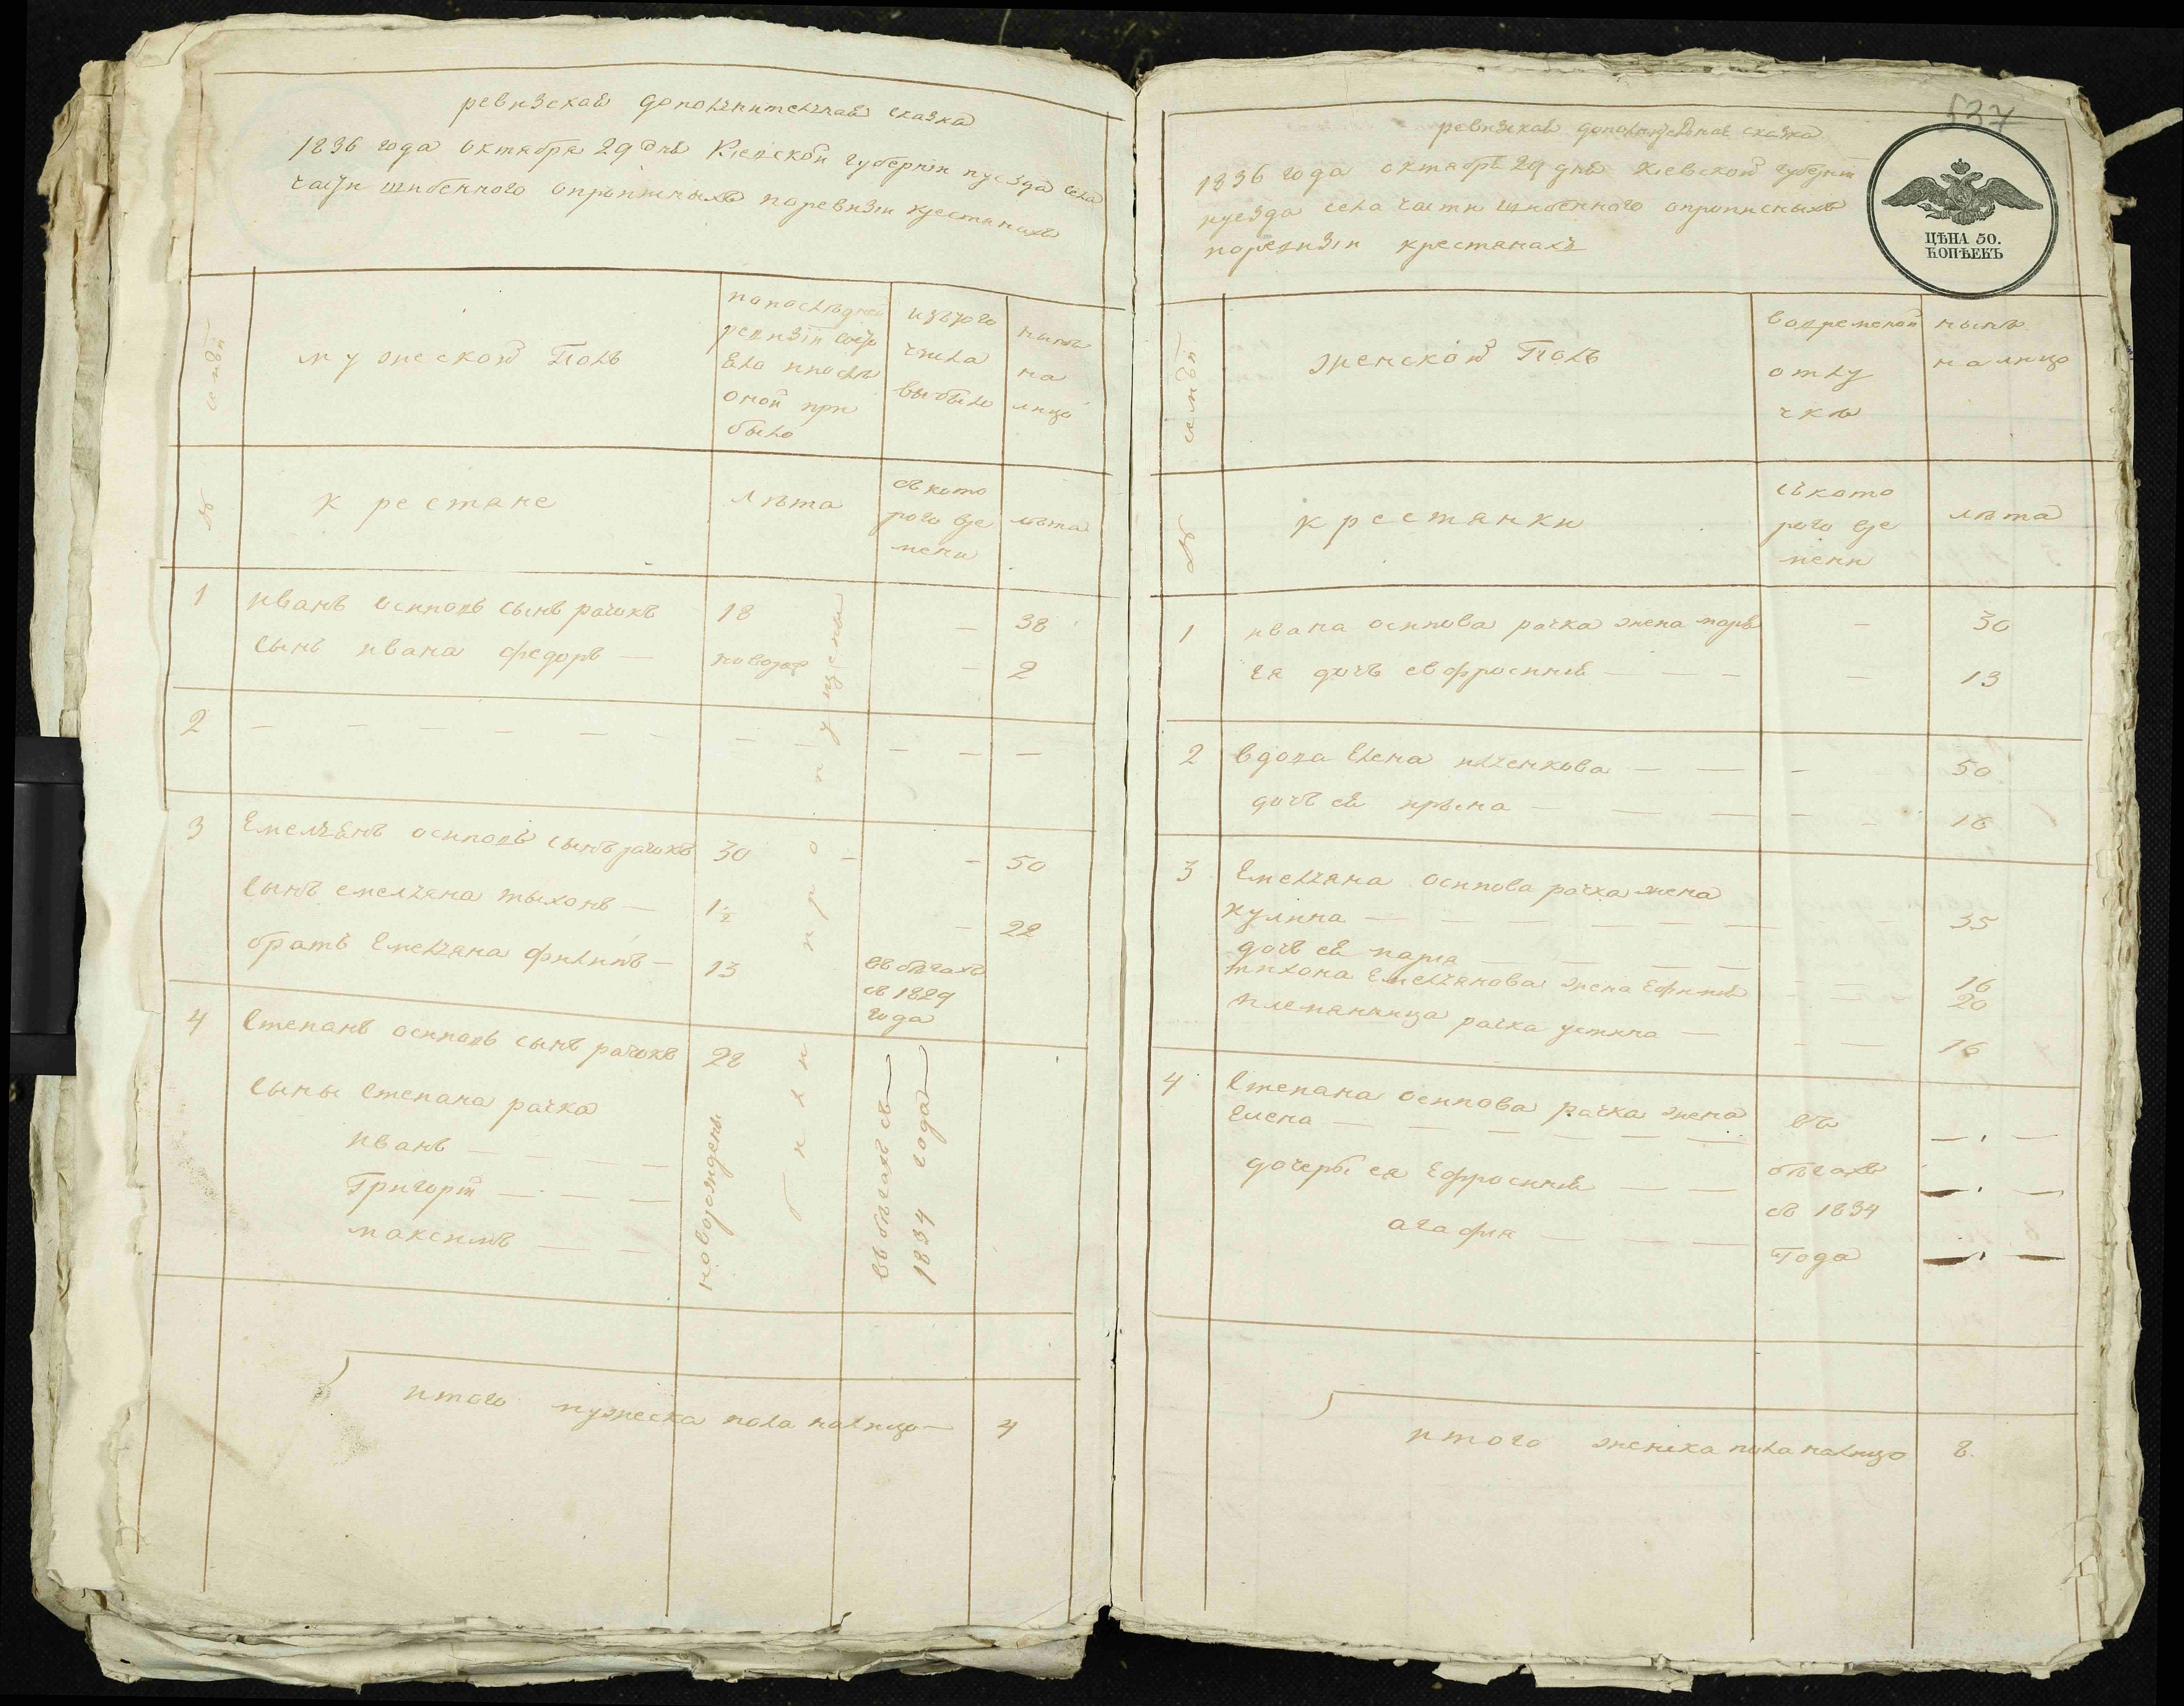 ревизская дополнителная сказка
1836 года октября 29 дня Киевской губернии иуезда села
части шибенного опрописныхъ поревизіи крестянахъ
семьи
мужеской Полъ
попоследней
ревизіи состо
Ело ипослѣ
оной при
было
изътого
числа
выбыло
нынѣ
на
лицо
№
крестяне
лѣта
съкото
рого вре
мени
лѣта
1 иванъ осиповъ сынъ рачокъ 18 — 38
сынъ ивана федоръ — новорож — 2
2 — — — — — — — — — — —
3 Емелъянъ осиповъ сынъ рачокъ 30 — — 50
сынъ емелъяна тыхонъ — 1½ — 22
братъ Емелъяна филипъ — 13
въ бѣгахъ
съ 1829
года
4 Степанъ осиповъ сынъ рачокъ 28
сыны Степана рачка
иванъ — — — —
Григорій — — —
максимъ — —
новорождены
пропущены
были
въ бѣгахъ съ
1834 года
итого мужеска пола налицо — 4
537
ревизкая дополнителная сказка
1836 года октября 29 дня киевской губерніи
иуезда села части шибенного опрописныхъ
поревизіи крестянахъ
ЦѢНА 50.
КОПѢЕКЪ
семьи
женской Полъ
вовременой
отлу
чкѣ
нынѣ
налицо
№
крестянки
съкото
рого вре
мени
лѣта
1 ивана осипова рачка жена марь — 30
ея дочъ евфросиния — — — — 13
2 вдова Елена илченкова — — — 50
дочъ ея ирына — — — — — 16
3 Емелъяна осипова рачка жена
кулина — — — — — — 35
дочъ ея марта — — — — 16
тихона Емелъянова жена Ефимия — — 20
племянница рачка устина — — — 16
4 Степана осипова рачка жена
Елена — — — — — — — —
дочеры ея Ефросиния — — — —
агафия — — — — —
въ
бѣгахъ
съ 1834
Года
итого женска пола налицо 8.